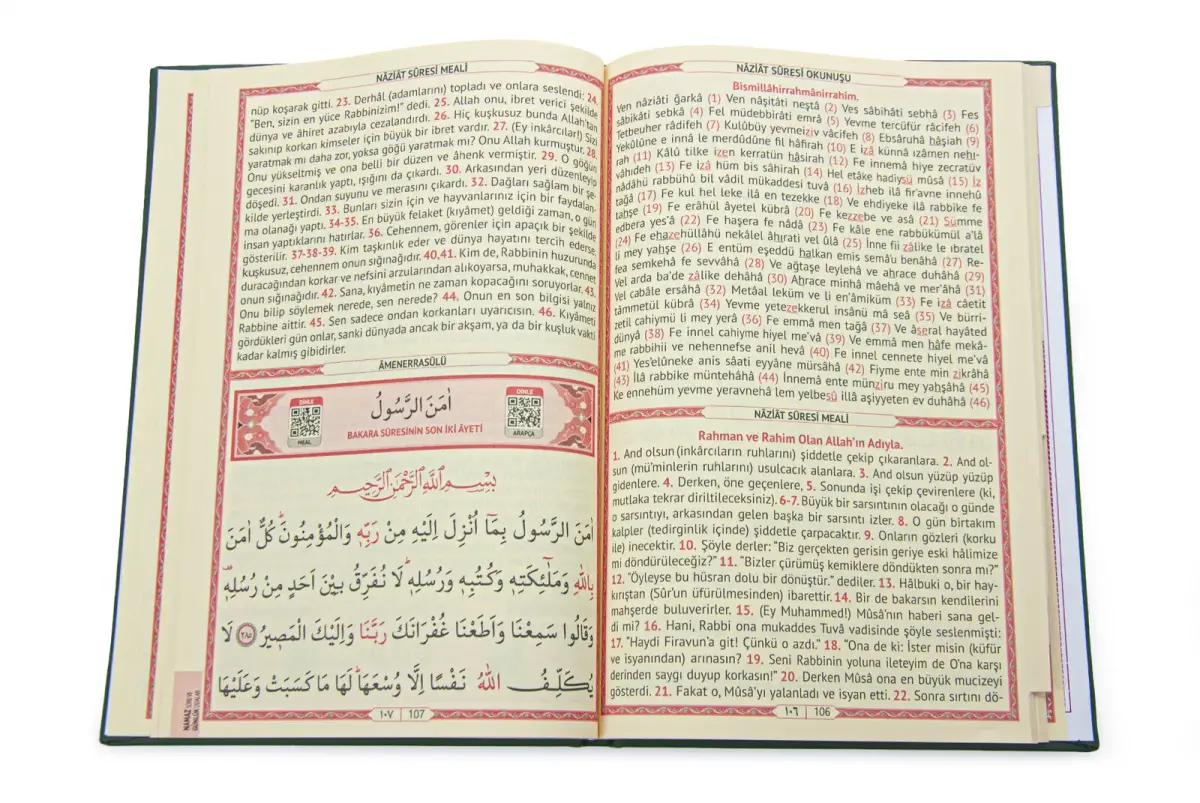 NÂZİÂT SÛRESİ OKUNUŞU
Bismillâhirrahmânirrahim.
Ven nâziâti ğarkâ (1) Ven nâşitâti neştâ (2) Ves sâbihâti sebhâ (3) Fes
sâbikâti sebkâ (4) Fel müdebbirâti emrâ (5) Yevme tercüfür râcifeh (6)
Tetbeuher râdifeh (7) Kulûbüy yevmeiziv vâcifeh (8) Ebsâruhâ hâşiah (9)
Yekûlûne e innâ le merdûdûne fil hâfirah (10) E izâ künnâ ızâmen nehı-
rah (11) Kâlû tilke izen kerratün hâsirah (12) Fe innemâ hiye zecratüv
vâhıdeh (13) Fe izâ hüm bis sâhirah (14) Hel etâke hadiysü mûsâ (15) İz
nâdâhü rabbühû bil vâdil mükaddesi tuvâ (16) İzheb ilâ fir'avne innehû
tağâ (17) Fe kul hel leke ilâ en tezekke (18) Ve ehdiyeke ilâ rabbike fe
tahşe (19) Fe erâhül âyetel kübrâ (20) Fe kezzebe ve asâ (21) Sümme
edbera yes'â (22) Fe haşera fe nâdâ (23) Fe kâle ene rabbükümül a'lâ
(24) Fe ehazehüllâhü nekâlel âhırati vel ûlâ (25) İnne fii zâlike le ıbratel
li mey yahşe (26) E entüm eşeddü halkan emis semâ'u benâhâ (27) Re-
fea semkehâ fe sevvâhâ (28) Ve ağtaşe leylehâ ve ahrace duhâhâ (29)
Vel arda ba'de zâlike dehâhâ (30) Ahrace minhâ mâehâ ve mer'âhâ (31)
Vel cabâle ersâhâ (32) Metâal leküm ve li en'âmiküm (33) Fe izâ câetit
tâmmetül kübrâ (34) Yevme yetezekkerul insânü mâ seâ (35) Ve bürri-
zetil cahiymü li mey yerâ (36) Fe emmâ men tağâ (37) Ve âseral hayâted
dünyâ (38) Fe innel cahiyme hiyel me'vâ (39) Ve emmâ men hâfe mekâ-
me rabbihii ve nehennefse anil hevâ (40) Fe innel cennete hiyel me'vâ
(41) Yes'elûneke anis sâati eyyâne mürsâhâ (42) Fiyme ente min zikrâhâ
(43) İlâ rabbike müntehâhâ (44) İnnemâ ente münziru mey yahşâhâ (45)
Ke ennehüm yevme yeravnehâ lem yelbesû illâ aşiyyeten ev duhâhâ (46)
NÂZİÂT SÛRESİ MEALİ
Rahman ve Rahim Olan Allah'ın Adıyla.
1. And olsun (inkârcıların ruhlarını) şiddetle çekip çıkaranlara. 2. And ol-
sun (mü'minlerin ruhlarını) usulcacık alanlara. 3. And olsun yüzüp yüzüp
gidenlere. 4. Derken, öne geçenlere, 5. Sonunda işi çekip çevirenlere (ki,
mutlaka tekrar diriltileceksiniz). 6-7. Büyük bir sarsıntının olacağı o günde
o sarsıntıyı, arkasından gelen başka bir sarsıntı izler. 8. O gün birtakım
kalpler (tedirginlik içinde) şiddetle çarpacaktır. 9. Onların gözleri (korku
ile) inecektir. 10. Şöyle derler: "Biz gerçekten gerisin geriye eski hâlimize
mi döndürüleceğiz?" 11. "Bizler çürümüş kemiklere döndükten sonra mı?"
12. "Öyleyse bu hüsran dolu bir dönüştür." dediler. 13. Hâlbuki o, bir hay-
kırıştan (Sûr'un üfürülmesinden) ibarettir. 14. Bir de bakarsın kendilerini
mahşerde buluverirler. 15. (Ey Muhammed!) Mûsâ'nın haberi sana gel-
di mi? 16. Hani, Rabbi ona mukaddes Tuvâ vadisinde şöyle seslenmişti:
17. "Haydi Firavun'a git! Çünkü o azdı." 18. "Ona de ki: İster misin (küfür
ve isyanından) arınasın? 19. Seni Rabbinin yoluna ileteyim de O'na karşı
derinden saygı duyup korkasın!" 20. Derken Mûsâ ona en büyük mucizeyi
gösterdi. 21. Fakat o, Mûsâ'yı yalanladı ve isyan etti. 22. Sonra sırtını dö-
١٠٦ 106
NÂZİÂT SÛRESİ MEALİ
nüp koşarak gitti. 23. Derhâl (adamlarını) topladı ve onlara seslendi: 24.
"Ben, sizin en yüce Rabbinizim!" dedi. 25. Allah onu, ibret verici şekilde
dünya ve âhiret azabıyla cezalandırdı. 26. Hiç kuşkusuz bunda Allah'tan
sakınıp korkan kimseler için büyük bir ibret vardır. 27. (Ey inkârcılar!) Sizi
yaratmak mı daha zor, yoksa göğü yaratmak mı? Onu Allah kurmuştur. 28.
Onu yükseltmiş ve ona belli bir düzen ve âhenk vermiştir. 29. O göğün
gecesini karanlık yaptı, ışığını da çıkardı. 30. Arkasından yeri düzenleyip
döşedi. 31. Ondan suyunu ve merasını çıkardı. 32. Dağları sağlam bir şe-
kilde yerleştirdi. 33. Bunları sizin için ve hayvanlarınız için bir faydalan-
ma olanağı yaptı. 34-35. En büyük felaket (kıyâmet) geldiği zaman, o gün
insan yaptıklarını hatırlar. 36. Cehennem, görenler için apaçık bir şekilde
gösterilir. 37-38-39. Kim taşkınlık eder ve dünya hayatını tercih ederse,
kuşkusuz, cehennem onun sığınağıdır. 40,41. Kim de, Rabbinin huzurunda
duracağından korkar ve nefsini arzularından alıkoyarsa, muhakkak, cennet
onun sığınağıdır. 42. Sana, kıyâmetin ne zaman kopacağını soruyorlar. 43.
Onu bilip söylemek nerede, sen nerede? 44. Onun en son bilgisi yalnız
Rabbine aittir. 45. Sen sadece ondan korkanları uyarıcısın. 46. Kıyâmeti
gördükleri gün onlar, sanki dünyada ancak bir akşam, ya da bir kuşluk vakti
kadar kalmış gibidirler.
ÂMENERRASÛLÜ
DİNLE
MEAL
اٰمَنَ الرَّسُولُ
BAKARA SÛRESİNİN SON İKİ ÂYETİ
DİNLE
ARAPÇA
بِسْمِ اللّٰهِ الرَّحْمٰنِ الرَّحِيمِ
اٰمَنَ الرَّسُولُ بِمَٓا اُنْزِلَ اِلَيْهِ مِنْ رَبِّهٖ وَالْمُؤْمِنُونَؕ كُلٌّ اٰمَنَ
بِاللّٰهِ وَمَلٰٓئِكَتِهٖ وَكُتُبِهٖ وَرُسُلِهٖؕ لَا نُفَرِّقُ بَيْنَ اَحَدٍ مِنْ رُسُلِهٖؕ
وَقَالُوا سَمِعْنَا وَاَطَعْنَا غُفْرَانَكَ رَبَّنَا وَاِلَيْكَ الْمَصٖيرُ ٢٨٥ لَا
يُكَلِّفُ اللّٰهُ نَفْسًا اِلَّا وُسْعَهَاؕ لَهَا مَا كَسَبَتْ وَعَلَيْهَا
١٠٧ 107